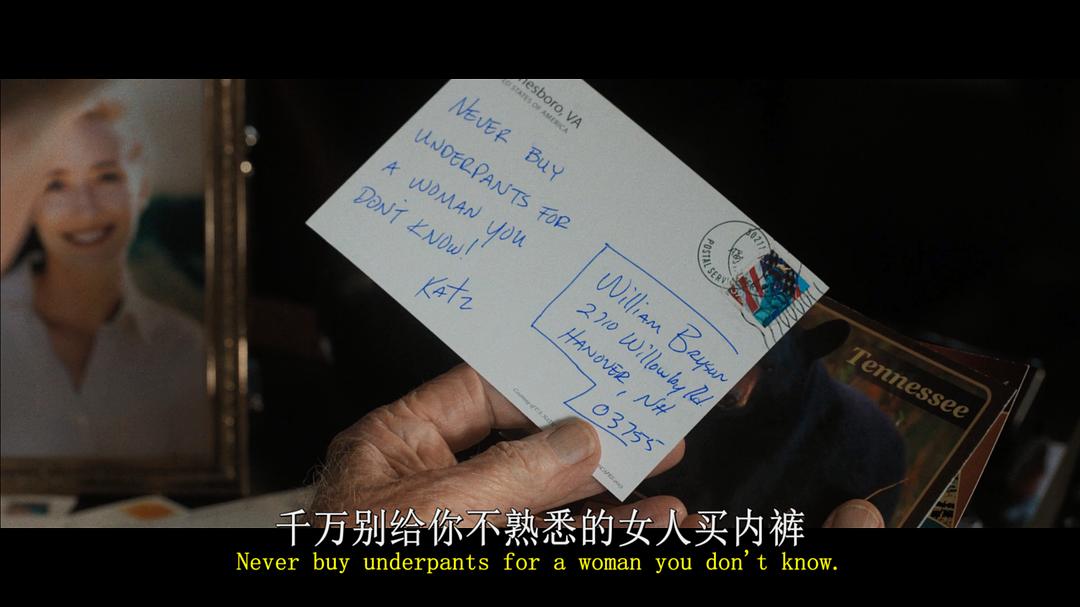 nesboro, VA
STATES OF AMERICA
NEVER BUY
UNDERPANTS FOR
A WOMAN YOU
DON'T KNOW!
Katz
POSTAL SERV
30217
William Bryson
2710 Willowby Rd.
HANOVER, NH
03755
Tennessee
千万别给你不熟悉的女人买内裤
Never buy underpants for a woman you don't know.